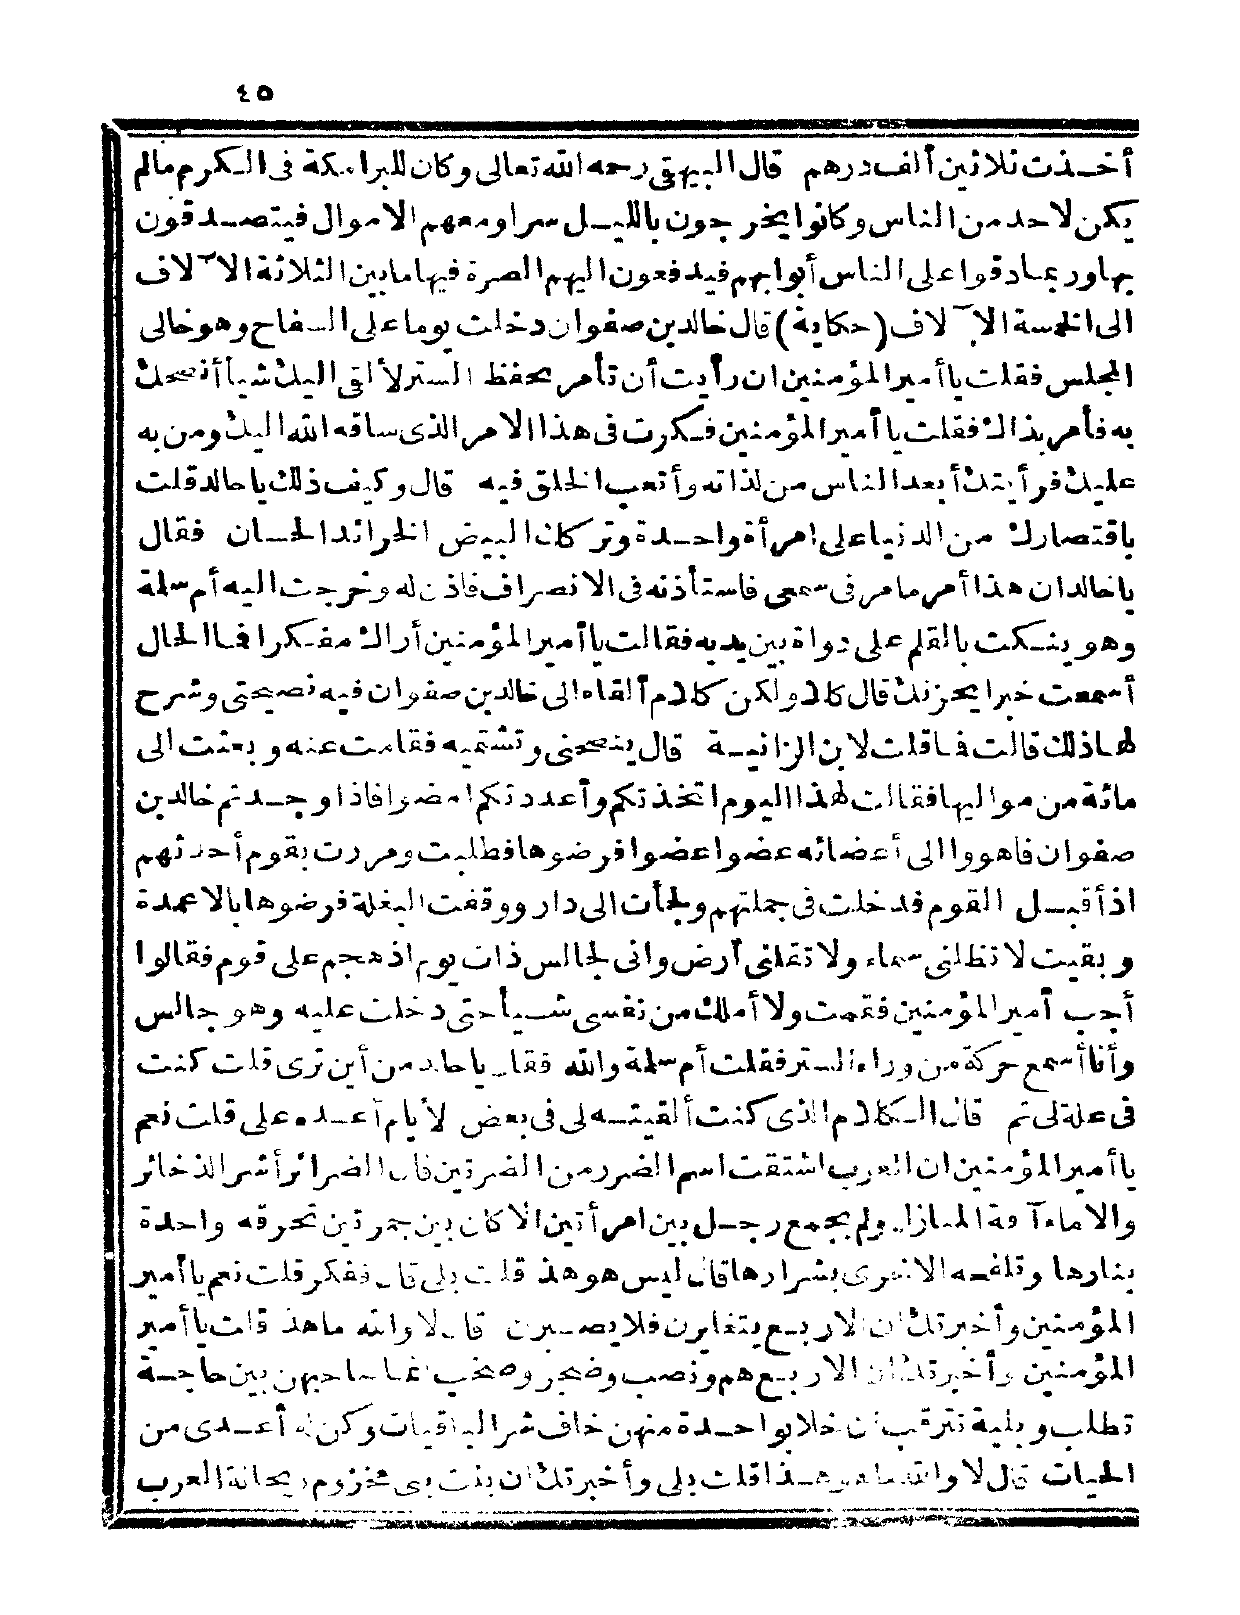 ٤٥
أخذت ثلاثين ألف درهم قال البيهقي رحمه الله تعالى وكان للبرامكة في الكرم مالم
يكن لاحد من الناس وكانوا يخرجون بالليل سرا ومعهم الاموال فيتصدقون
بها وربما دقوا على الناس أبوابهم فيدفعون اليهم الصرة فيها ما بين الثلاثة الآلاف
الى الخمسة الآلاف (حكاية) قال خالد بن صفوان دخلت يوما على السفاح وهو خالى
المجلس فقلت يا أمير المؤمنين ان رأيت أن تأمر بحفظ الستر لألقى اليك شيأ أنصحك
به فأمر بذلك فقلت يا أمير المؤمنين فكرت في هذا الامر الذى ساقه الله اليك ومن به
عليك فرأيتك أبعد الناس من لذاته وأتعب الخلق فيه قال وكيف ذلك يا خالد قلت
باقتصارك من الدنيا على امرأة واحدة وتركك البيض الخرائد الحسان فقال
يا خالد ان هذا أمر ما مر في سمعى فاستأذنه في الانصراف فاذن له وخرجت اليه أم سلمة
وهو ينكت بالقلم على دواة بين يديه فقالت يا أمير المؤمنين أراك مفكرا فما الحال
أسمعت خبرا يحزنك قال كلا ولكن كلام ألقاه الى خالد بن صفوان فيه نصيحتى وشرح
لها ذلك قالت فما قلت لابن الزانية قال ينصحنى وتشتميه فقامت عنه وبعثت الى
مائة من مواليها فقالت لهذا اليوم اتخذتكم وأعددتكم امضوا فاذا وجدتم خالد بن
صفوان فاهووا الى أعضائه عضوا عضوا فرضوها فطلبت ومررت بقوم أحدثهم
اذ أقبل القوم فدخلت في جملتهم ولجأت الى دار ووقفت البغلة فرضوها بالاعمدة
وبقيت لا تظلنى سماء ولا تقلنى أرض وانى لجالس ذات يوم اذ هجم على قوم فقالوا
أجب أمير المؤمنين فقمت ولا أملك من نفسى شيأ حتى دخلت عليه وهو جالس
وأنا أسمع حركة من وراء الستر فقلت أم سلمة والله فقال يا خالد من أين ترى قلت كنت
في علة لى ثم قال الكلام الذى كنت ألقيته لى في بعض الأيام أعده على قلت نعم
يا أمير المؤمنين ان العرب اشتقت اسم الضرر من الضرتين فان الضرائر أشر الذخائر
والاماء آفة المنازل ولم يجمع رجل بين امرأتين الا كان بين جمرتين تحرقه واحدة
بنارها وتلفحه الاخرى بشرارها قال ليس هو هذا قلت بلى قال ففكر قلت نعم يا أمير
المؤمنين وأخبرتك ان الاربع يتغايرن فلا يصبرن قال لا والله ما هذا قلت يا أمير
المؤمنين وأخبرتك ان الاربع هم ونصب وضجر وصخب انما صاحبهن بين حاجة
تطلب وبلية تترقب ان خلا بواحدة منهن خاف شر الباقيات وكن له أعدى من
الحيات قال لا والله ما هو هذا قلت بلى وأخبرتك ان بنت بنى مخزوم ريحانة العرب